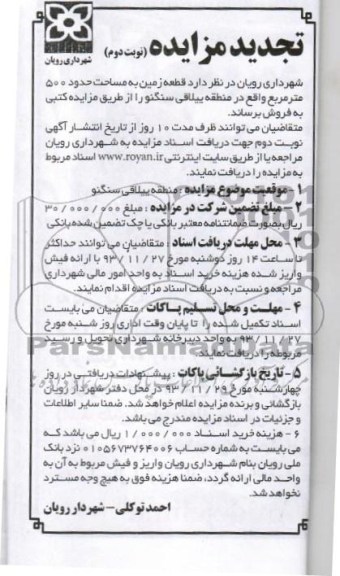 تجدید مزایده (نوبت دوم)
شهرداری رویان
شهرداری رویان در نظر دارد قطعه زمین به مساحت حدود ۵۰۰
مترمربع واقع در منطقه ییلاقی سنگنو را از طریق مزایده کتبی
به فروش برساند.
متقاضیان می توانند ظرف مدت ۱۰ روز از تاریخ انتشار آگهی
نوبت دوم جهت دریافت اسناد مزایده به شهرداری رویان
مراجعه یا از طریق سایت اینترنتی www.royan.ir اسناد مربوط
به مزایده را دریافت نمایند.
۱- موقعیت موضوع مزایده : منطقه ییلاقی سنگنو
۲- مبلغ تضمین شرکت در مزایده : مبلغ ۳۰/۰۰۰/۰۰۰
ریال بصورت ضمانتنامه معتبر بانکی یا چک تضمین شده بانکی
۳- محل مهلت دریافت اسناد : متقاضیان می توانند حداکثر
تا ساعت ۱۴ روز دوشنبه مورخ ۹۳/۱۱/۲۷ با ارائه فیش
واریز شده هزینه خرید اسناد به واحد امور مالی شهرداری
مراجعه و نسبت به دریافت اسناد مزایده اقدام نمایند.
۴- مهلت و محل تسلیم پاکات : متقاضیان می بایست
اسناد تکمیل شده را تا پایان وقت اداری روز شنبه مورخ
۹۳/۱۱/۲۷ به واحد دبیرخانه شهرداری تحویل و رسید
مربوطه را دریافت نمایند.
۵- تاریخ بازگشائی پاکات : پیشنهادات دریافتی در روز
چهارشنبه مورخ ۹۳/۱۱/۲۹ در محل دفتر شهردار رویان
بازگشائی و برنده مزایده اعلام خواهد شد. ضمنا سایر اطلاعات
و جزئیات در اسناد مزایده مندرج می باشد.
۶- هزینه خرید اسناد ۱/۰۰۰/۰۰۰ ریال می باشد که
می بایست به شماره حساب ۰۱۰۵۶۷۳۷۶۴۰۰۶ نزد بانک
ملی رویان بنام شهرداری رویان واریز و فیش مربوط به آن به
واحد مالی ارائه گردد، ضمنا هزینه فوق به هیچ وجه مسترد
نخواهد شد.
احمد توکلی - شهردار رویان